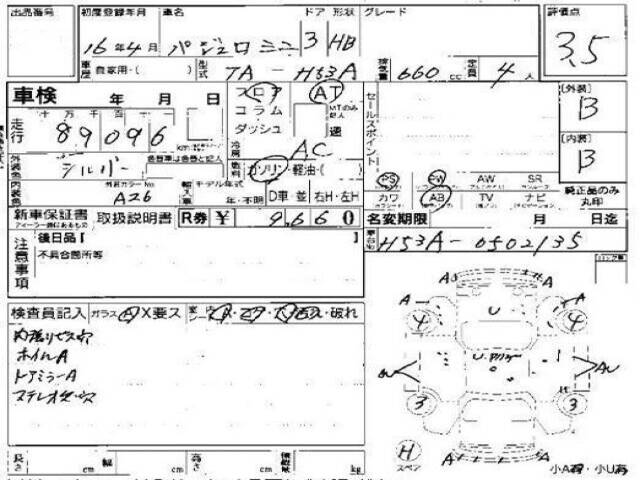 出品番号 初度登録年月 車名 ドア 形状 グレード 評価点
16年4月 パジェロミニ 3 HB 3.5
車歴 自家用・( ) 型式 TA-H53A 排気量 660 cc 定員 4 人
車検 年 月 日 フロア AT セールスポイント [外装]
十万 千 百 十 コラム MTのみ記入 B
走行 89096 km ダッシュ 速 [内装]
冷房 AC B
外装色 シルバー 色替車は色替と記入 燃料 ガソリン・軽油・( ) PS PW AW SR 純正品のみ丸印
内装色 外装カラーNo. A26 輸入車 モデル年式 年・不明 D車・並 右H・左H カワ AB TV ナビ
新車保証書 取扱説明書 R券 ¥ 9660 名変期限 月 日迄
注意事項 後日品【 】 車台No. H53A-0502135
不具合箇所等
検査員記入 ガラス A X要ス ・破れ
内張りビス穴
ホイルA
ドアミラーA
ステレオビス穴
A A
A A
4 U 4
U
AU AU
3 3
H スペア A A
長さ cm 幅 cm 高さ cm 積載量 kg 小A有・小U有